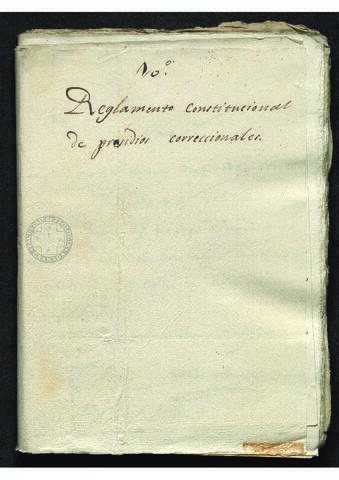 10.º
Reglamento Constitucional
de presidios correccionales.